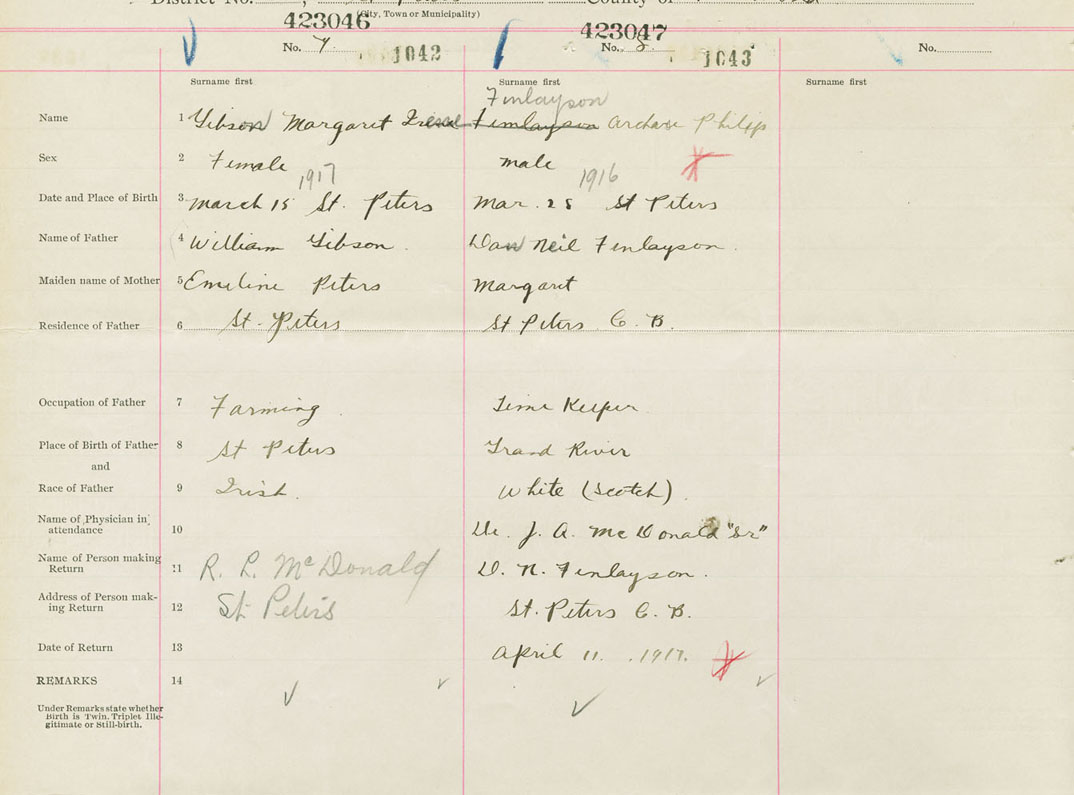 District No.
County of
(City, Town or Municipality)
423046
423047
No. 7
1042
No. 8
1043
No.
Surname first
Surname first
Surname first
Finlayson
Name 1 Gibson Margaret Irene Finlayson Archie Philip
Sex 2 Female male
1917 1916
Date and Place of Birth 3 March 15 St. Peters Mar. 28 St Peters
Name of Father 4 William Gibson. Dan Neil Finlayson.
Maiden name of Mother 5 Emeline Peters Margaret
Residence of Father 6 St. Peters St Peters C. B.
Occupation of Father 7 Farming. Time Keeper.
Place of Birth of Father 8 St Peters Grand River
and
Race of Father 9 Irish. White (Scotch).
Name of Physician in
attendance 10 Dr. J. A. McDonald "Sr"
Name of Person making
Return 11 R. L. McDonald D. N. Finlayson.
Address of Person mak-
ing Return 12 St. Peters St. Peters C. B.
Date of Return 13 April 11. 1917.
REMARKS 14
Under Remarks state whether
Birth is Twin, Triplet Ille-
gitimate or Still-birth.